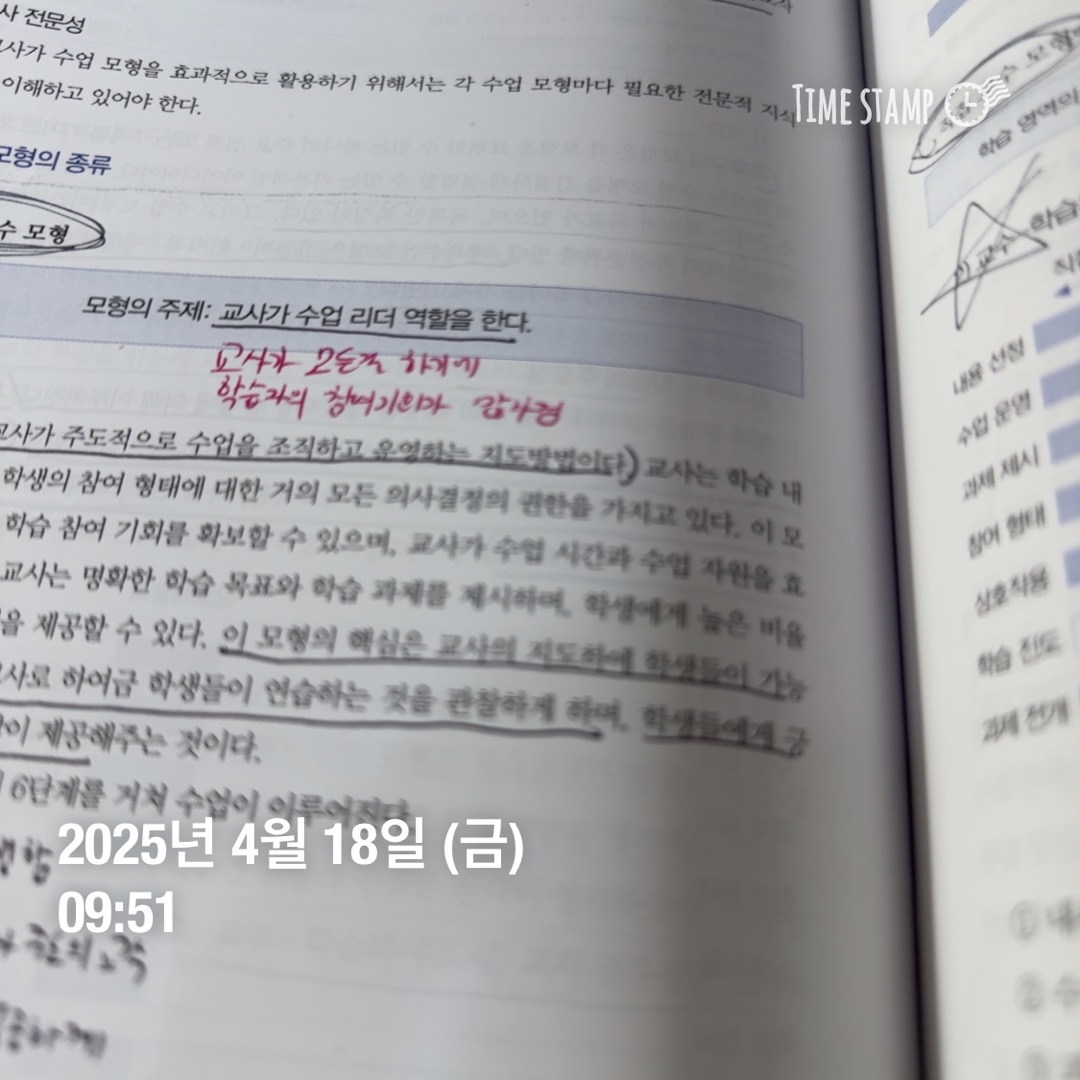 사 전문성
교사가 수업 모형을 효과적으로 활용하기 위해서는 각 수업 모형마다 필요한 전문적 지식
이해하고 있어야 한다.
모형의 종류
수 모형
모형의 주제: 교사가 수업 리더 역할을 한다.
교사가 모든걸 하기에
학습자의 참여기회가 감소됨
교사가 주도적으로 수업을 조직하고 운영하는 지도방법이다) 교사는 학습 내
학생의 참여 형태에 대한 거의 모든 의사결정의 권한을 가지고 있다. 이 모
학습 참여 기회를 확보할 수 있으며, 교사가 수업 시간과 수업 자원을 효
교사는 명확한 학습 목표와 학습 과제를 제시하며, 학생에게 높은 비율
을 제공할 수 있다. 이 모형의 핵심은 교사의 지도하에 학생들이 가능
교사로 하여금 학생들이 연습하는 것을 관찰하게 하며, 학생들에게 긍
이 제공해주는 것이다.
6단계를 거쳐 수업이 이루어진다.
TIME STAMP
2025년 4월 18일 (금)
09:51
수 모형
학습 영역의
교수 학습
내용 선정
수업 운영
과제 제시
참여 형태
상호작용
학습 진도
과제 전개
① 내
② 수